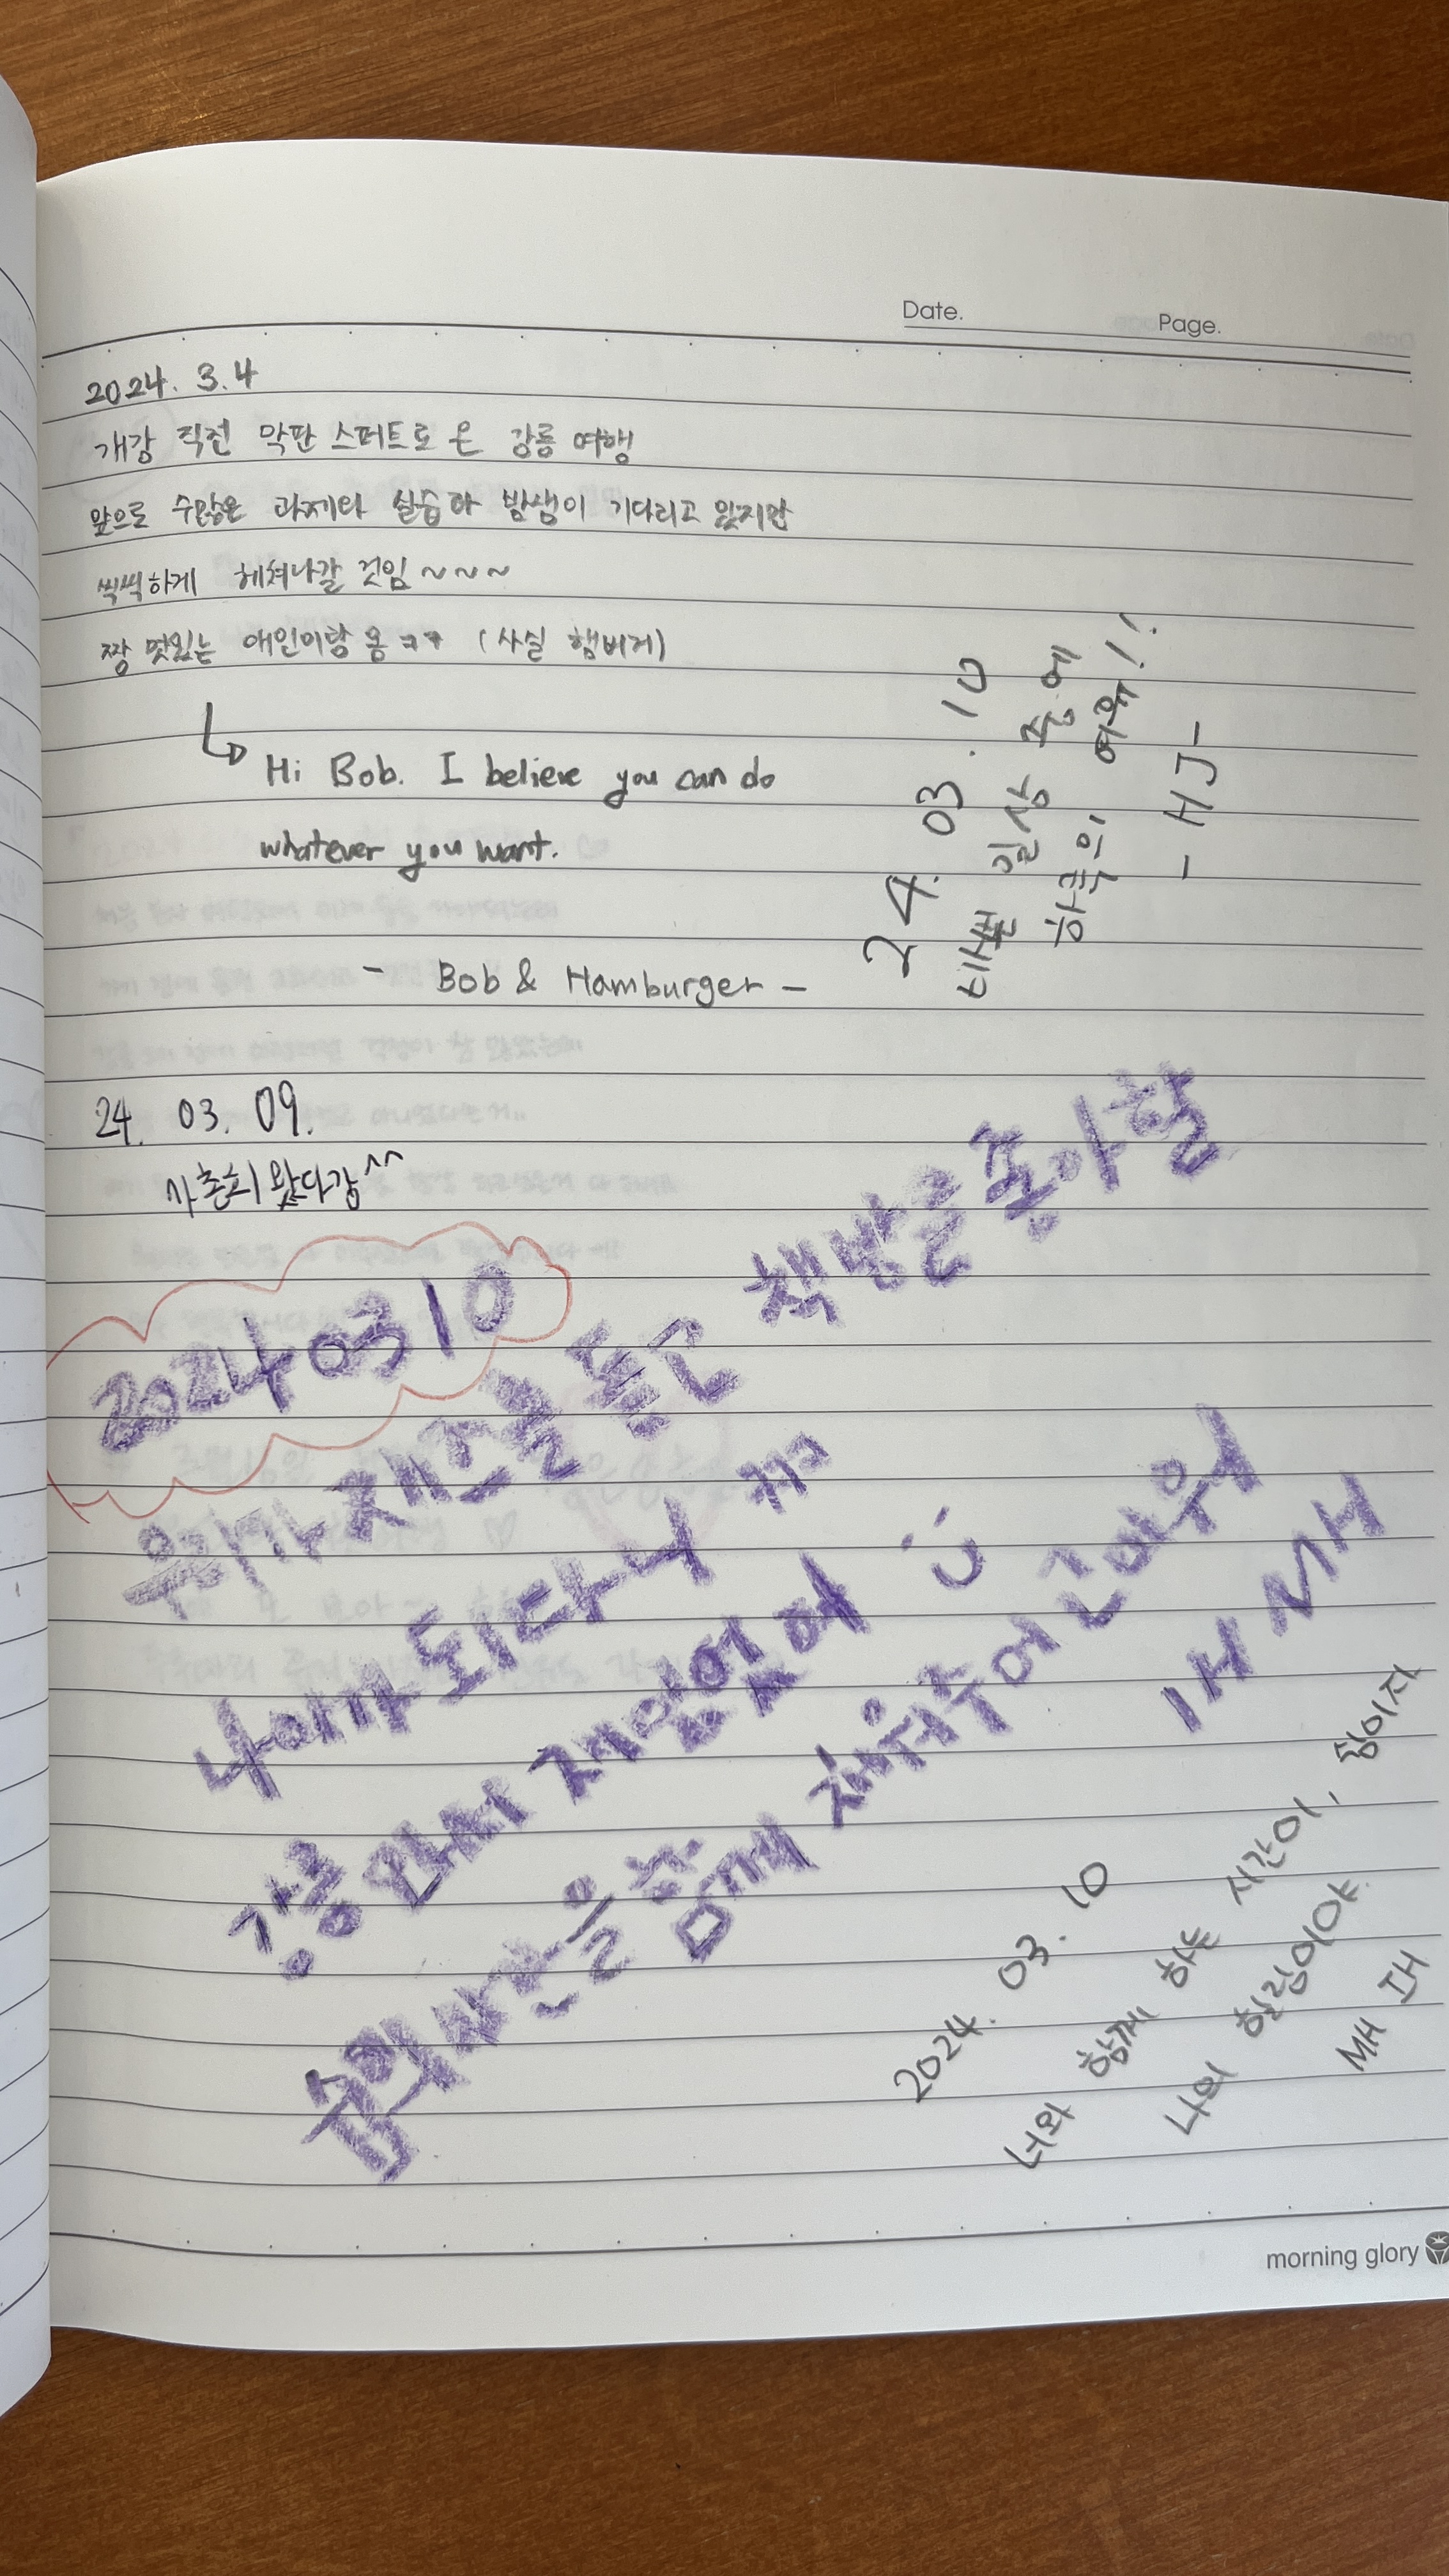 Date. Page.
2024. 3. 4
개강 직전 막판 스퍼트로 온 강릉 여행
앞으로 수많은 과제와 실습과 밤샘이 기다리고 있지만
씩씩하게 헤쳐나갈 것임 ~~~
짱 멋있는 애인이랑 옴 ㅋㅋ (사실 햄버거)
Hi Bob. I believe you can do
whatever you want.
- Bob & Hamburger -
24. 03. 10
바쁜 일상 중에
하루의 여유!!
- HJ -
24. 03. 09.
사촌회 왔다감^^
20240310
우리가 재즈를 듣고 책방을 좋아할
나이가 되다니 ㅋㅋㅋ
강릉 와서 재밌었어
시간을 함께 채워주어 고마워
IH MH
2024. 03. 10
너와 함께 하는 시간이, 힘이자
나의 힐링이야.
MH IH
morning glory